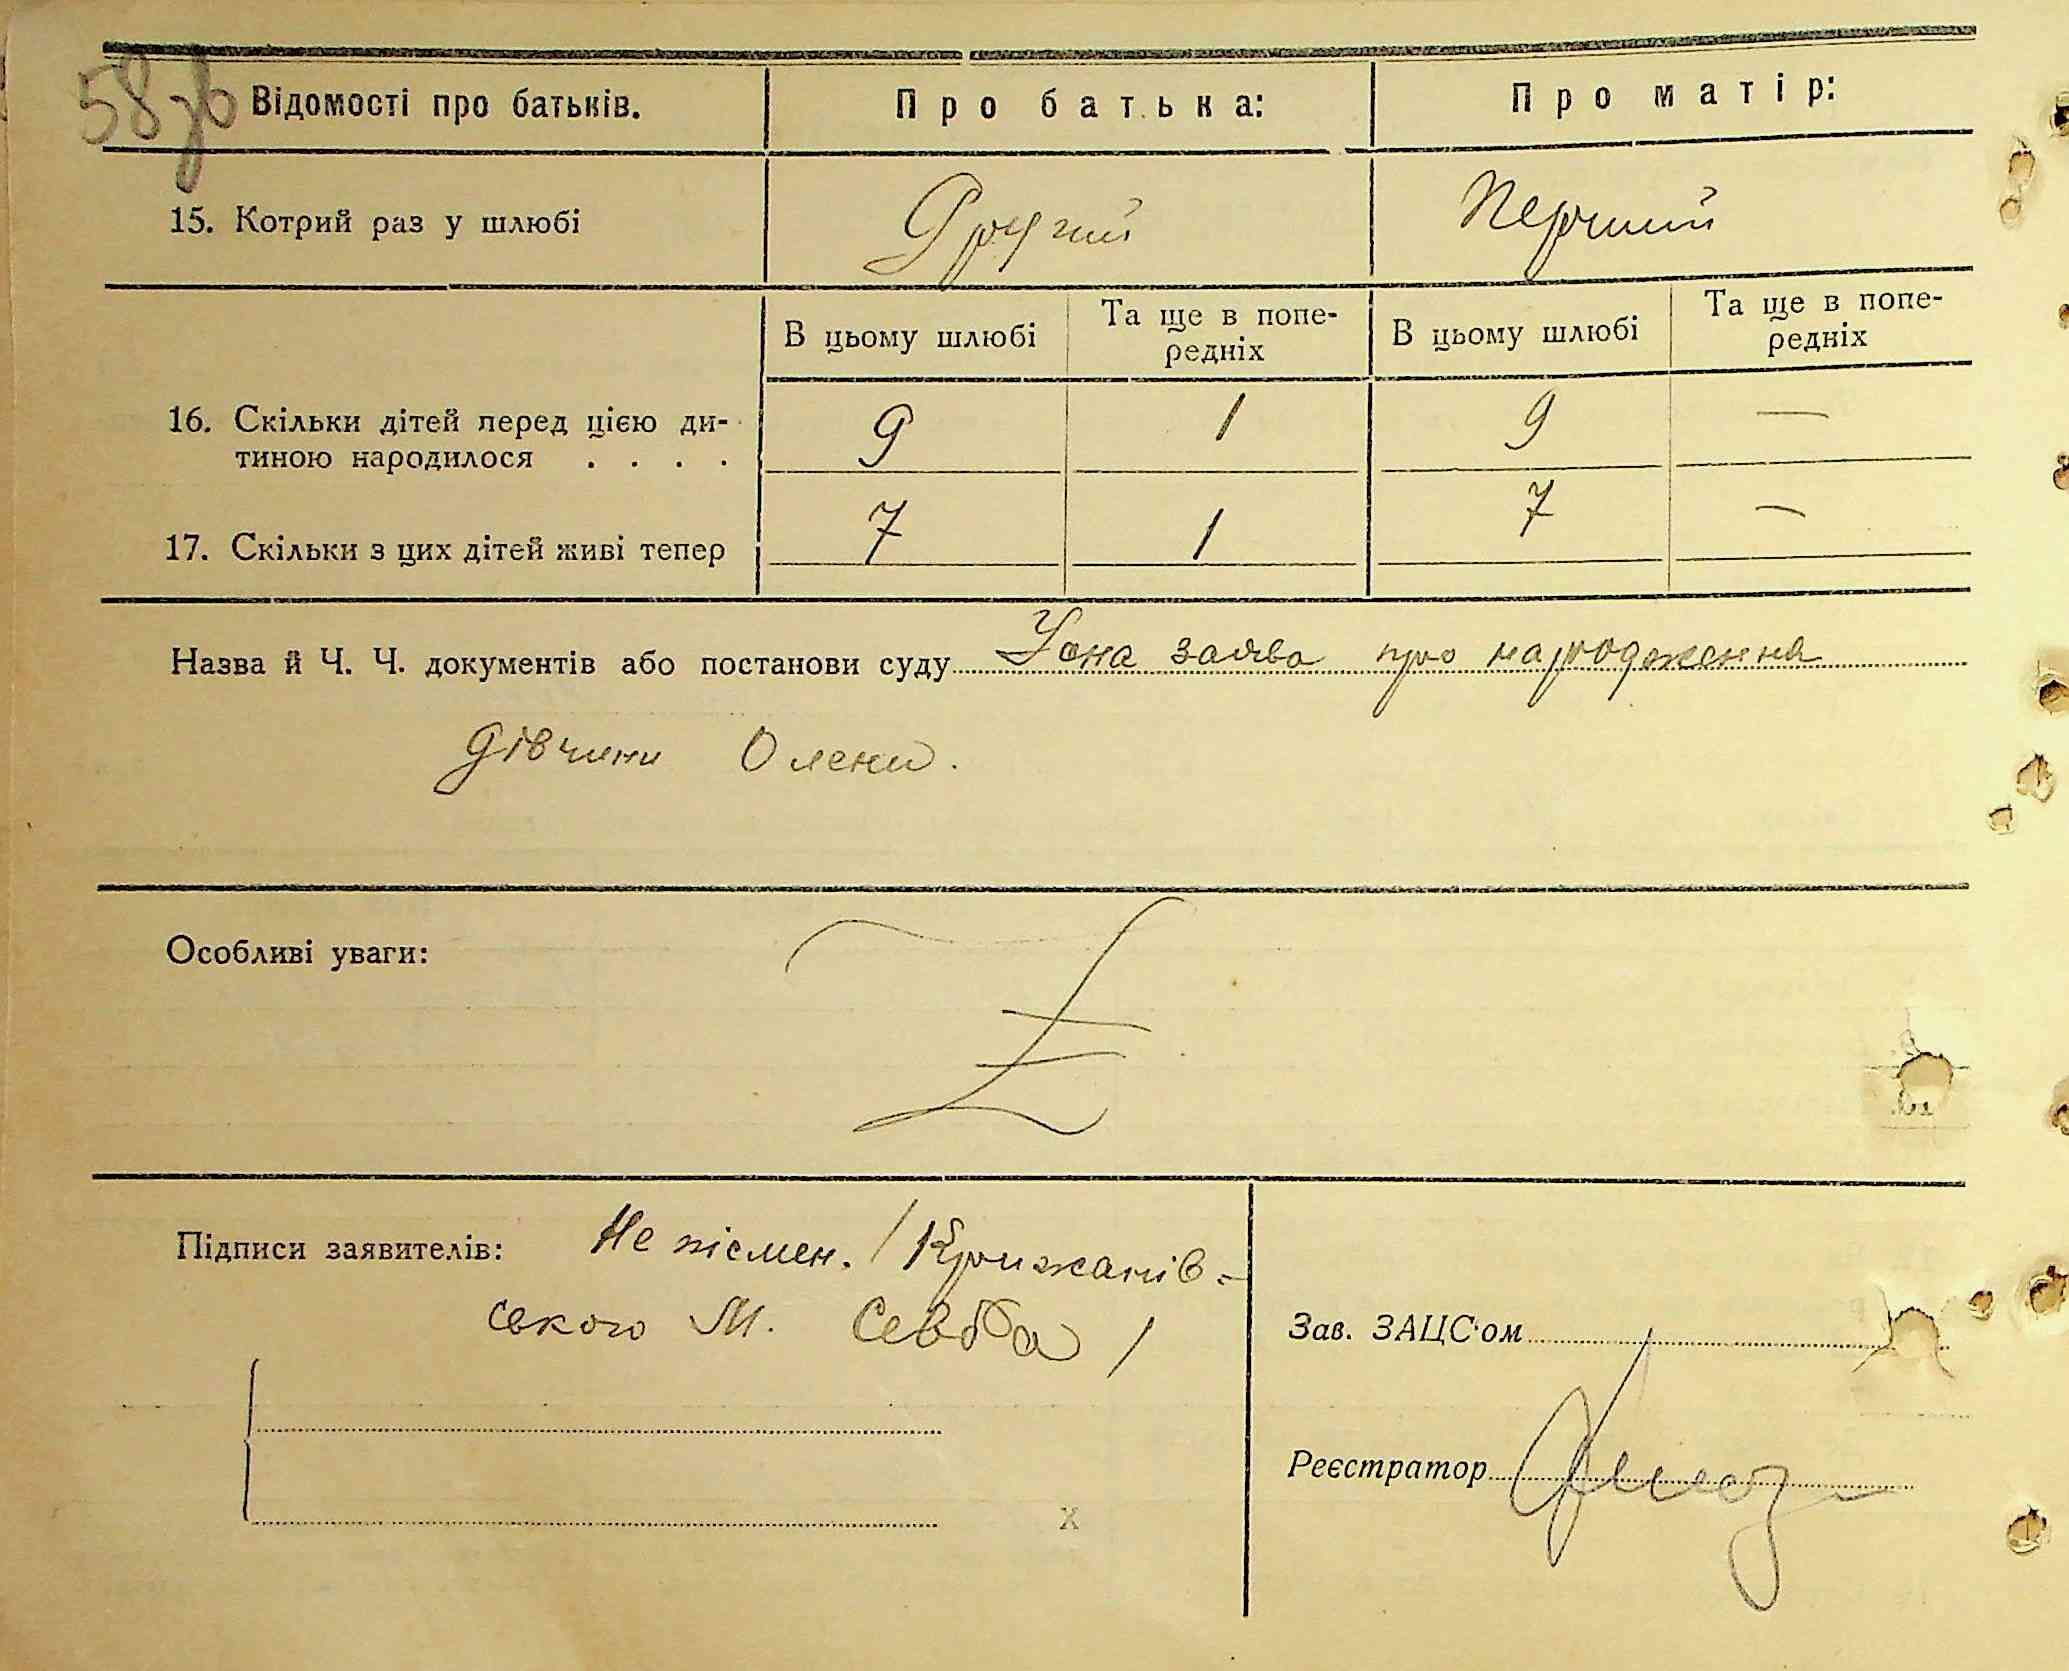 58зв
Відомості про батьків. Про батька: Про матір:
15. Котрий раз у шлюбі Другий Перший
В цьому шлюбі Та ще в попе- В цьому шлюбі Та ще в попе-
редніх редніх
16. Скільки дітей перед цією ди- 9 1 9 —
тиною народилося . . . .
17. Скільки з цих дітей живі тепер 7 1 7 —
Назва й Ч. Ч. документів або постанови суду заява про народження
дівчини Олени.
Особливі уваги:
Підписи заявителів: Не písмен. / Крижанів-
ського М. /
Зав. ЗАЦС'ом
Реєстратор
х